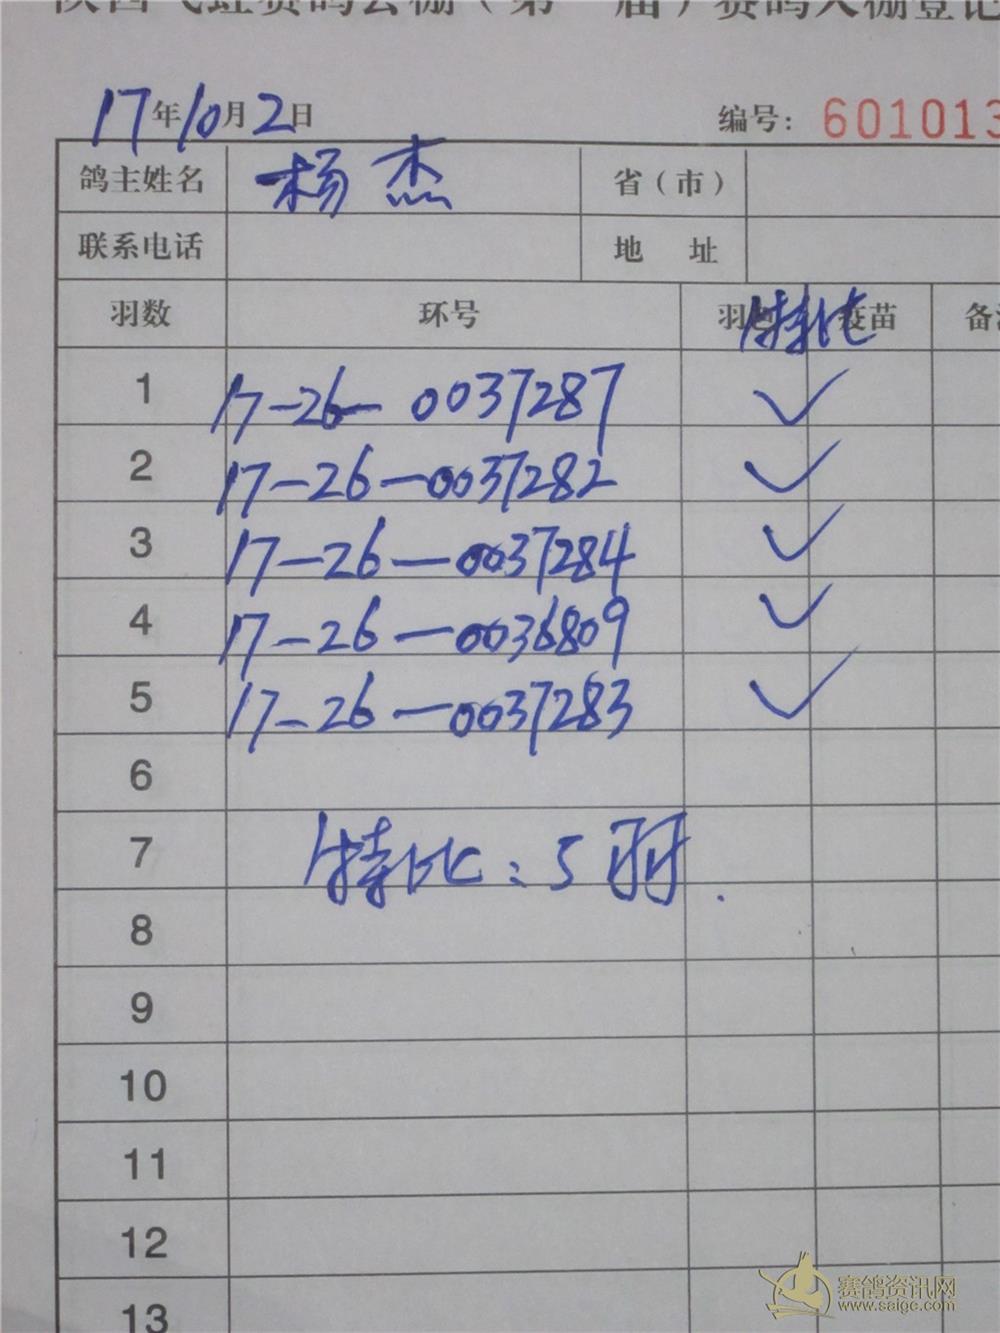 陕西 赛鸽公棚（第 届）赛鸽入棚登记
17年10月2日 编号：601013
鸽主姓名 杨杰 省（市）
联系电话 地 址
羽数 环号 羽 特比 疫苗 备
1 17-26-0037287 ✓
2 17-26-0037282 ✓
3 17-26-0037284 ✓
4 17-26-0036809 ✓
5 17-26-0037283 ✓
6
7 特比：5羽.
8
9
10
11
12
13
赛鸽资讯网
www.saigc.com